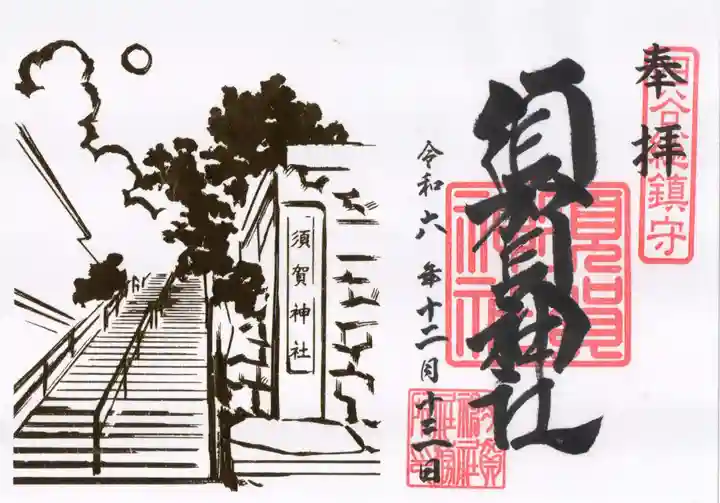 奉拝
四谷総鎮守
須賀神社
令和六年十二月十三日
須賀神社